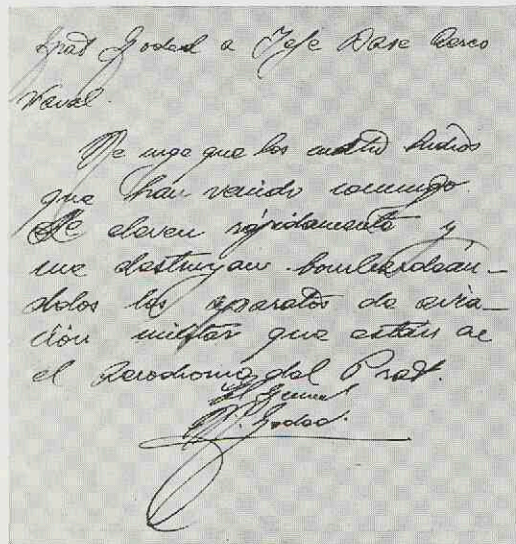 Gral Goded a Jefe Base Aereo
Naval.
Me urge que los cuatro hidros
que han venido conmigo
se eleven rápidamente y
me destruyan bombardeán-
dolos los aparatos de avia-
ción militar que están en
el Aerodromo del Prat.
El General
M. Goded.